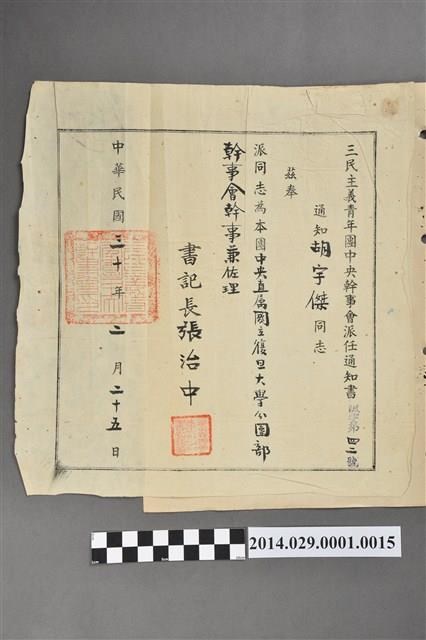 三民主義青年團中央幹事會派任通知書 第四二號
通知胡宇傑同志
茲奉
派同志為本團中央直屬國立復旦大學分團部
幹事會幹事兼佐理
書記長張治中
中華民國三十年二月二十五日
2014.029.0001.0015